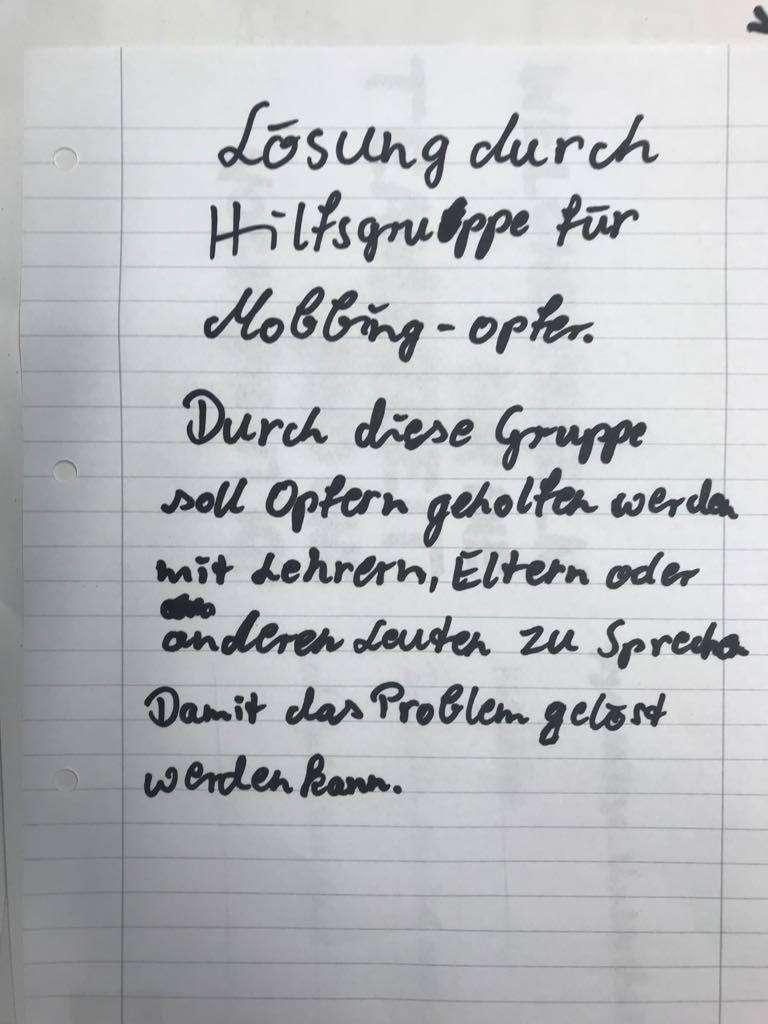 Lösung durch
Hilfsgruppe für
Mobbing-opfer.
Durch diese Gruppe
soll Opfern geholfen werden
mit Lehrern, Eltern oder
anderen Leuten zu Sprechen
Damit das Problem gelöst
werden kann.